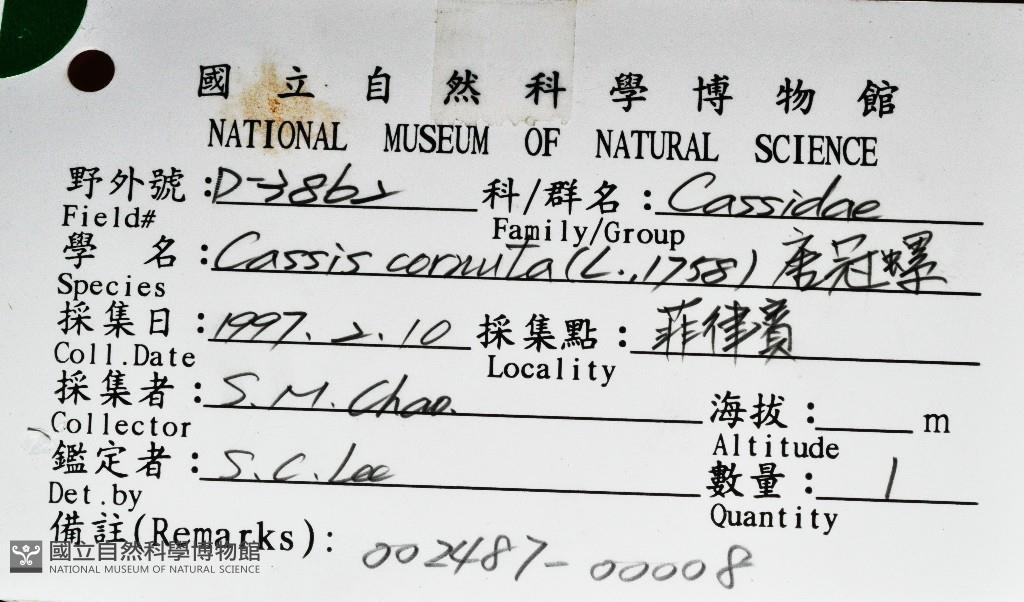 國立自然科學博物館
NATIONAL MUSEUM OF NATURAL SCIENCE
野外號：D-3862 科/群名：Cassidae
Field# Family/Group
學名：Cassis cornuta (L., 1758) 唐冠螺
Species
採集日：1997. 2. 10 採集點：菲律賓
Coll.Date Locality
採集者：S. M. Chao. 海拔：m
Collector Altitude
鑑定者：S. C. Lee 數量：1
Det.by Quantity
備註(Remarks)： 002487-00008
國立自然科學博物館
NATIONAL MUSEUM OF NATURAL SCIENCE